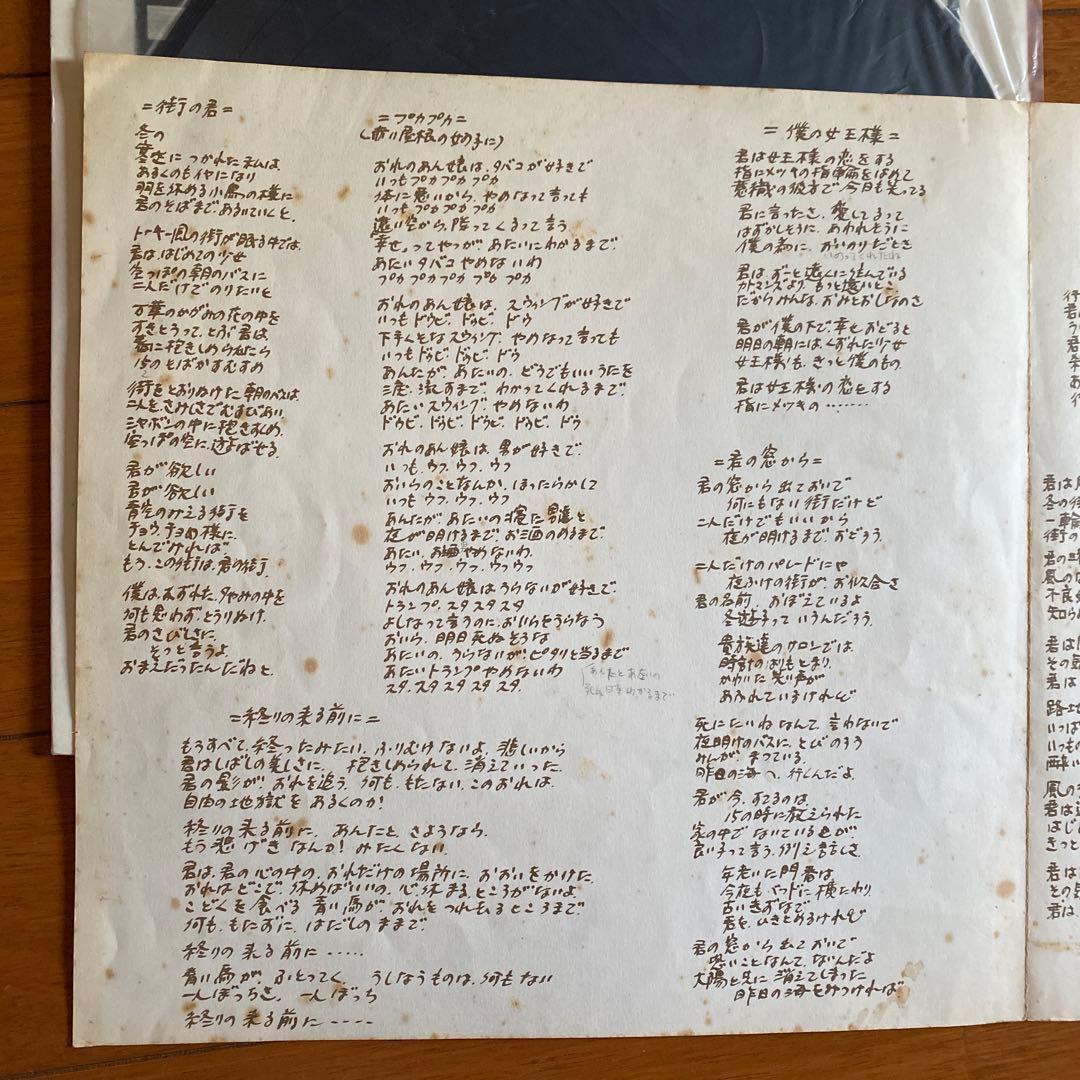 =街の君=
冬の
寒さに つかれた私は、
あるくのもイヤになり
羽を休める小鳥の様に
君のそばまで、あるいていくと、
トーキー風の街が眠る中では、
君は、はじめての少女
空っぽの朝のバスに
二人だけでのりたいと
万華のかがみの花の中を
すきとうって、とぶ君は、
君に抱きしめられたら
15のそばかすむすめ
街をとおりぬけた朝のバスは、
二人を、さみしさでむすびあい、
シャボンの中に抱きすくめ、
空っぽの空に、遊ばせる。
君が欲しい
君が欲しい
青空のみえる街を
チョウチョウの様に、
とんでければ、
もう、この街は、君の街。
僕は、まずれた、夕やみの中を
何も思わず、とうりぬけ、
君のさびしさに、
そっと言うよ、
おまえだったんだねと。
=プカプカ=
(赤い屋根の女の子に)
おれのあん娘は、タバコが好きで
いつもプカプカプカ
体に悪いから、やめなって言っても
いつもプカプカプカ
遠い空から、降ってくるって言う
幸せってやつが、あたいにわかるまで、
あたいタバコやめないわ
プカプカプカプカプカ
おれのあん娘は、スウィングが好きで
いつもドゥビ、ドゥビ、ドゥ
下手くそなスウィング、やめなって言っても
いつもドゥビドゥビ、ドゥ
あんたが、あたいの、どうでもいいうたを
三度、流すまで、わかってくれるまで、
あたいスウィング、やめないわ
ドゥビ、ドゥビ、ドゥビ、ドゥビ、ドゥ
おれのあん娘は、男が好きで、
いつも、ウフ、ウフ、ウフ
おいらのことなんか、ほったらかして
いつもウフ、ウフ、ウフ
あんたが、あたいの寝た男達と
夜が明けるまで、お酒のめるまで、
あたい、お酒やめないわ、
ウフ、ウフ、ウフ、ウフゥウフ
おれのあん娘は、うらないが好きで、
トランプ、スタスタスタ
よしなって言うのに、おいらをうらなう
おいら、明日死ぬそうな
あたいの、うらないが、ピタリと当るまで
あたいトランプやめないわ
スタ、スタ スタ スタ スタ、
あんたとあたいの
死ぬ日をわかるまで
=終りの来る前に=
もうすべて、終ったみたい、ふりむけないよ、悲しいから
君はしばしの美しさに、 抱きしめられて、消えていった。
君の影が、おれを追う、何も、もたない、このおれは、
自由の地獄を あるくのか!
終りの来る前に、あんたと、さようなら、
もう悲げきなんか!みたくない、
君は、君の心の中の、おれだけの場所に、おおいをかけた、
おれはどこで、休めばいいの、心、休まるところがないよ
こどくを食べる 青い馬が、おれをつれ去るところまで、
何も、もたずに、はだしのままで、
終りの来る前に・・・・・
青い馬が、ふとってく、うしなうものは、何もない
一人ぼっちさ、一人ぼっち
終りの来る前に----
=僕の女王様=
君は女王様の恋をする
指にメッキの指輪をはめて
意識の彼方で、今日も笑ってる
君に言ったさ、愛してるって
はずかしそうに、あわれそうに
僕の為に、おいのりだとさ
いのってくれたね
君は、ずーと遠くに住んでいる
カトマンズより、もっと遠いとこ
だからみんな、おみとおしなのさ
君が僕の下で、幸せ、おどると
明日の朝には、くずれた少女
女王様も、きっと僕のもの
君は女王様の恋をする
指にメッキの・・・・・・・
=君の窓から=
君の窓から出ておいで
何にもない街だけど
二人だけでもいいから
夜が明けるまで、おどろう、
二人だけのパレードにや
夜ふけの街が、お似合さ
君の名前、おぼえているよ
冬遊子っていうんだろう、
貴族達のサロンでは、
時計のはりもとまり、
かわいた笑い声が
あふれているけれど
死にたいわなんて、言わないで
夜明けのバスに、とびのろう
みんが、まっている、
昨日の海へ、行くんだよ、
君が今、すてるのは、
15の時に教えられた
家の中で、ないている色が、
良い子って言う、例え言さ、
年老いた門番は、
今夜もベッドに横たわり、
古いきおなで、
君を、ひきとめるけれど
君の窓から出ておいで
思いことなんて、ないんだよ
太陽と兄に消えてしまった
昨日の海をみつければ、